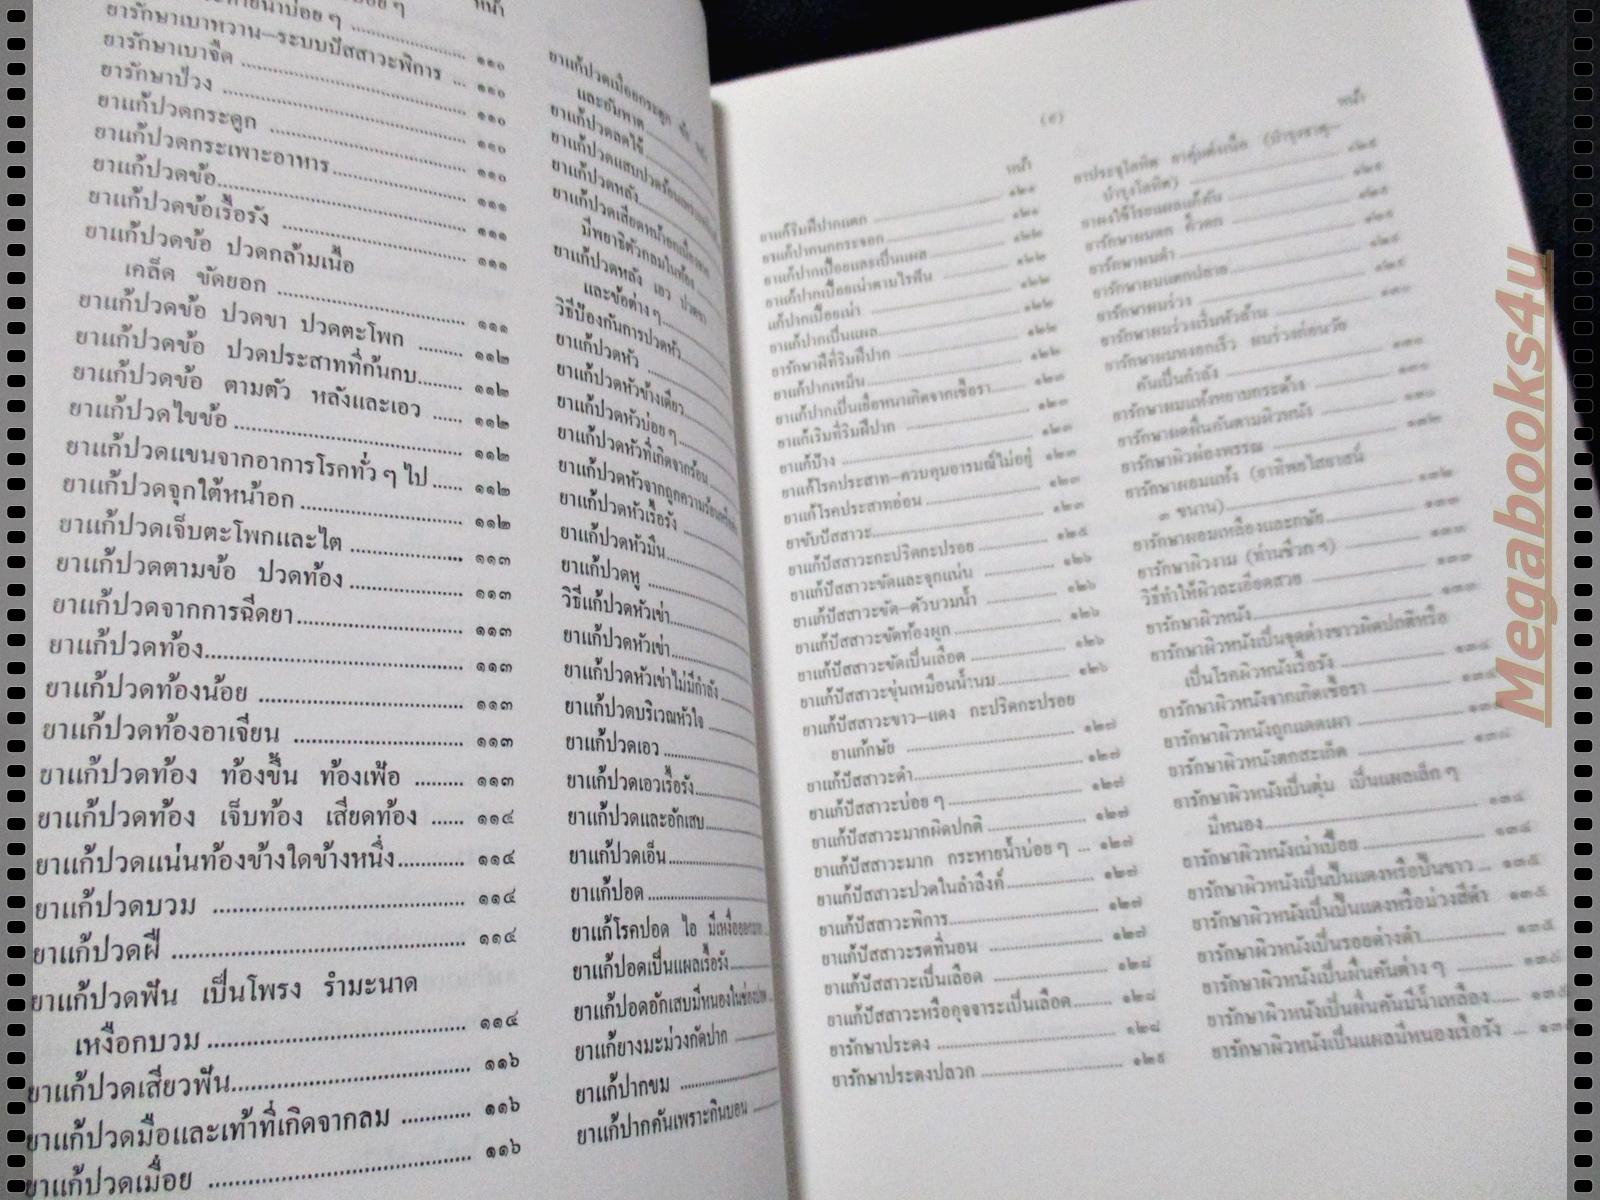 หน้า
ยารักษาเบาหวาน–ระบบปัสสาวะพิการ ... ๑๑๐
ยารักษาเบาจืด ๑๑๐
ยารักษาป่วง ๑๑๐
ยาแก้ปวดกระดูก ๑๑๐
ยาแก้ปวดกระเพาะอาหาร ๑๑๐
ยาแก้ปวดข้อ ๑๑๑
ยาแก้ปวดข้อเรื้อรัง ๑๑๑
ยาแก้ปวดข้อ ปวดกล้ามเนื้อ
เคล็ด ขัดยอก ๑๑๑
ยาแก้ปวดข้อ ปวดขา ปวดตะโพก ๑๑๒
ยาแก้ปวดข้อ ปวดประสาทที่ก้นกบ ๑๑๒
ยาแก้ปวดข้อ ตามตัว หลังและเอว ๑๑๒
ยาแก้ปวดไขข้อ ๑๑๒
ยาแก้ปวดแขนจากอาการโรคทั่ว ๆ ไป ๑๑๒
ยาแก้ปวดจุกใต้หน้าอก ๑๑๒
ยาแก้ปวดเจ็บตะโพกและไต ๑๑๓
ยาแก้ปวดตามข้อ ปวดท้อง ๑๑๓
ยาแก้ปวดจากการฉีดยา ๑๑๓
ยาแก้ปวดท้อง ๑๑๓
ยาแก้ปวดท้องน้อย ๑๑๓
ยาแก้ปวดท้องอาเจียน ๑๑๓
ยาแก้ปวดท้อง ท้องขึ้น ท้องเฟ้อ ๑๑๓
ยาแก้ปวดท้อง เจ็บท้อง เสียดท้อง ๑๑๔
ยาแก้ปวดแน่นท้องข้างใดข้างหนึ่ง ๑๑๔
ยาแก้ปวดบวม ๑๑๔
ยาแก้ปวดฝี ๑๑๔
ยาแก้ปวดฟัน เป็นโพรง รำมะนาด
เหงือกบวม ๑๑๔
ยาแก้ปวดเสียวฟัน ๑๑๖
ยาแก้ปวดมือและเท้าที่เกิดจากลม ๑๑๖
ยาแก้ปวดเมื่อย ๑๑๖
ยาแก้ปวดเมื่อยกระดูก
และอัมพาต
ยาแก้ปวดลดไข้
ยาแก้ปวดแสบปวดร้อน
ยาแก้ปวดหลัง
ยาแก้ปวดเสียดหน้าอก
มีพยาธิตัวกลมในท้อง
ยาแก้ปวดหลัง เอว ปวดขา
และข้อต่าง ๆ
วิธีป้องกันการปวดหัว
ยาแก้ปวดหัว
ยาแก้ปวดหัวข้างเดียว
ยาแก้ปวดหัวบ่อย ๆ
ยาแก้ปวดหัวที่เกิดจากร้อน
ยาแก้ปวดหัวจากถูกความร้อน
ยาแก้ปวดหัวเรื้อรัง
ยาแก้ปวดหัวมึน
ยาแก้ปวดหู
วิธีแก้ปวดหัวเข่า
ยาแก้ปวดหัวเข่า
ยาแก้ปวดหัวเข่าไม่มีกำลัง
ยาแก้ปวดบริเวณหัวใจ
ยาแก้ปวดเอว
ยาแก้ปวดเอวเรื้อรัง
ยาแก้ปวดและอักเสบ
ยาแก้ปวดเอ็น
ยาแก้ปอด
ยาแก้โรคปอด ไอ มีเหงื่อออกมาก
ยาแก้ปอดเป็นแผลเรื้อรัง
ยาแก้ปอดอักเสบมีหนองในช่องปอด
ยาแก้ยางมะม่วงกัดปาก
ยาแก้ปากขม
ยาแก้ปากคันเพราะกินบอน
(๙)
หน้า
ยาแก้ริมฝีปากแตก ๑๒๑
ยาแก้ปากนกกระจอก ๑๒๑
ยาแก้ปากเปื่อยและเป็นแผล ๑๒๒
ยาแก้ปากเปื่อยเน่าตามไรฟัน ๑๒๒
แก้ปากเปื่อยเน่า ๑๒๒
ยาแก้ปากเป็นแผล ๑๒๒
ยารักษาฝีที่ริมฝีปาก ๑๒๒
ยาแก้ปากเหม็น ๑๒๒
ยาแก้ปากเป็นเยื่อหนาเกิดจากเชื้อรา ๑๒๓
ยาแก้เริมที่ริมฝีปาก ๑๒๓
ยาแก้ป้าง ๑๒๓
ยาแก้โรคประสาท–ควบคุมอารมณ์ไม่อยู่ ๑๒๓
ยาแก้โรคประสาทอ่อน ๑๒๓
ยาขับปัสสาวะ ๑๒๓
ยาแก้ปัสสาวะกะปริดกะปรอย ๑๒๕
ยาแก้ปัสสาวะขัดและจุกแน่น ๑๒๖
ยาแก้ปัสสาวะขัด–ตัวบวมน้ำ ๑๒๖
ยาแก้ปัสสาวะขัดท้องผูก ๑๒๖
ยาแก้ปัสสาวะขัดเป็นเลือด ๑๒๖
ยาแก้ปัสสาวะขุ่นเหมือนน้ำนม ๑๒๖
ยาแก้ปัสสาวะขาว–แดง กะปริดกะปรอย
ยาแก้กษัย ๑๒๘
ยาแก้ปัสสาวะดำ ๑๒๗
ยาแก้ปัสสาวะบ่อย ๆ ๑๒๗
ยาแก้ปัสสาวะมากผิดปกติ ๑๒๗
ยาแก้ปัสสาวะมาก กระหายน้ำบ่อย ๆ ... ๑๒๗
ยาแก้ปัสสาวะปวดในลำลึงค์ ๑๒๗
ยาแก้ปัสสาวะพิการ ๑๒๗
ยาแก้ปัสสาวะรดที่นอน ๑๒๗
ยาแก้ปัสสาวะเป็นเลือด ๑๒๘
ยาแก้ปัสสาวะหรืออุจจาระเป็นเลือด ๑๒๘
ยารักษาประดง ๑๒๘
ยารักษาประดงปลวก ๑๒๙
หน้า
บำรุงโลหิต)
ยารักษาผมดำ
ยารักษาผมแตกปลาย
ยารักษาผมร่วง
ยารักษาผมร่วงเริ่มหัวล้าน
ยารักษาผมหงอกเร็ว ผมร่วงก่อนวัย
คันเป็นกำลัง
ยารักษาผมแห้งหยาบกระด้าง
ยารักษาผดผื่นคันตามผิวหนัง
ยารักษาผิวผ่องพรรณ ๑๓๒
๓ ขนาน) ๑๓๒
ยารักษาผอมเหลืองและกษัย ๑๓๓
วิธีทำให้ผิวละเอียดสวย ๑๓๓
ยารักษาผิวหนัง ๑๓๓
ยารักษาผิวหนังเป็นจุดด่างขาวผิดปกติหรือ
เป็นโรคผิวหนังเรื้อรัง ๑๓๔
ยารักษาผิวหนังจากเกิดเชื้อรา
ยารักษาผิวหนังถูกแดดเผา
ยารักษาผิวหนังตกสะเก็ด
ยารักษาผิวหนังเป็นตุ่ม เป็นแผลเล็ก ๆ
มีหนอง ๑๓๔
ยารักษาผิวหนังเน่าเปื่อย ๑๓๔
ยารักษาผิวหนังเป็นปื้นแดงหรือปื้นขาว ... ๑๓๕
ยารักษาผิวหนังเป็นปื้นแดงหรือม่วงสีดำ ๑๓๕
ยารักษาผิวหนังเป็นรอยด่างดำ ๑๓๕
ยารักษาผิวหนังเป็นผื่นคันต่าง ๆ ๑๓๕
ยารักษาผิวหนังเป็นผื่นคันมีน้ำเหลือง
ยารักษาผิวหนังเป็นแผลมีหนองเรื้อรัง
Megabooks4u